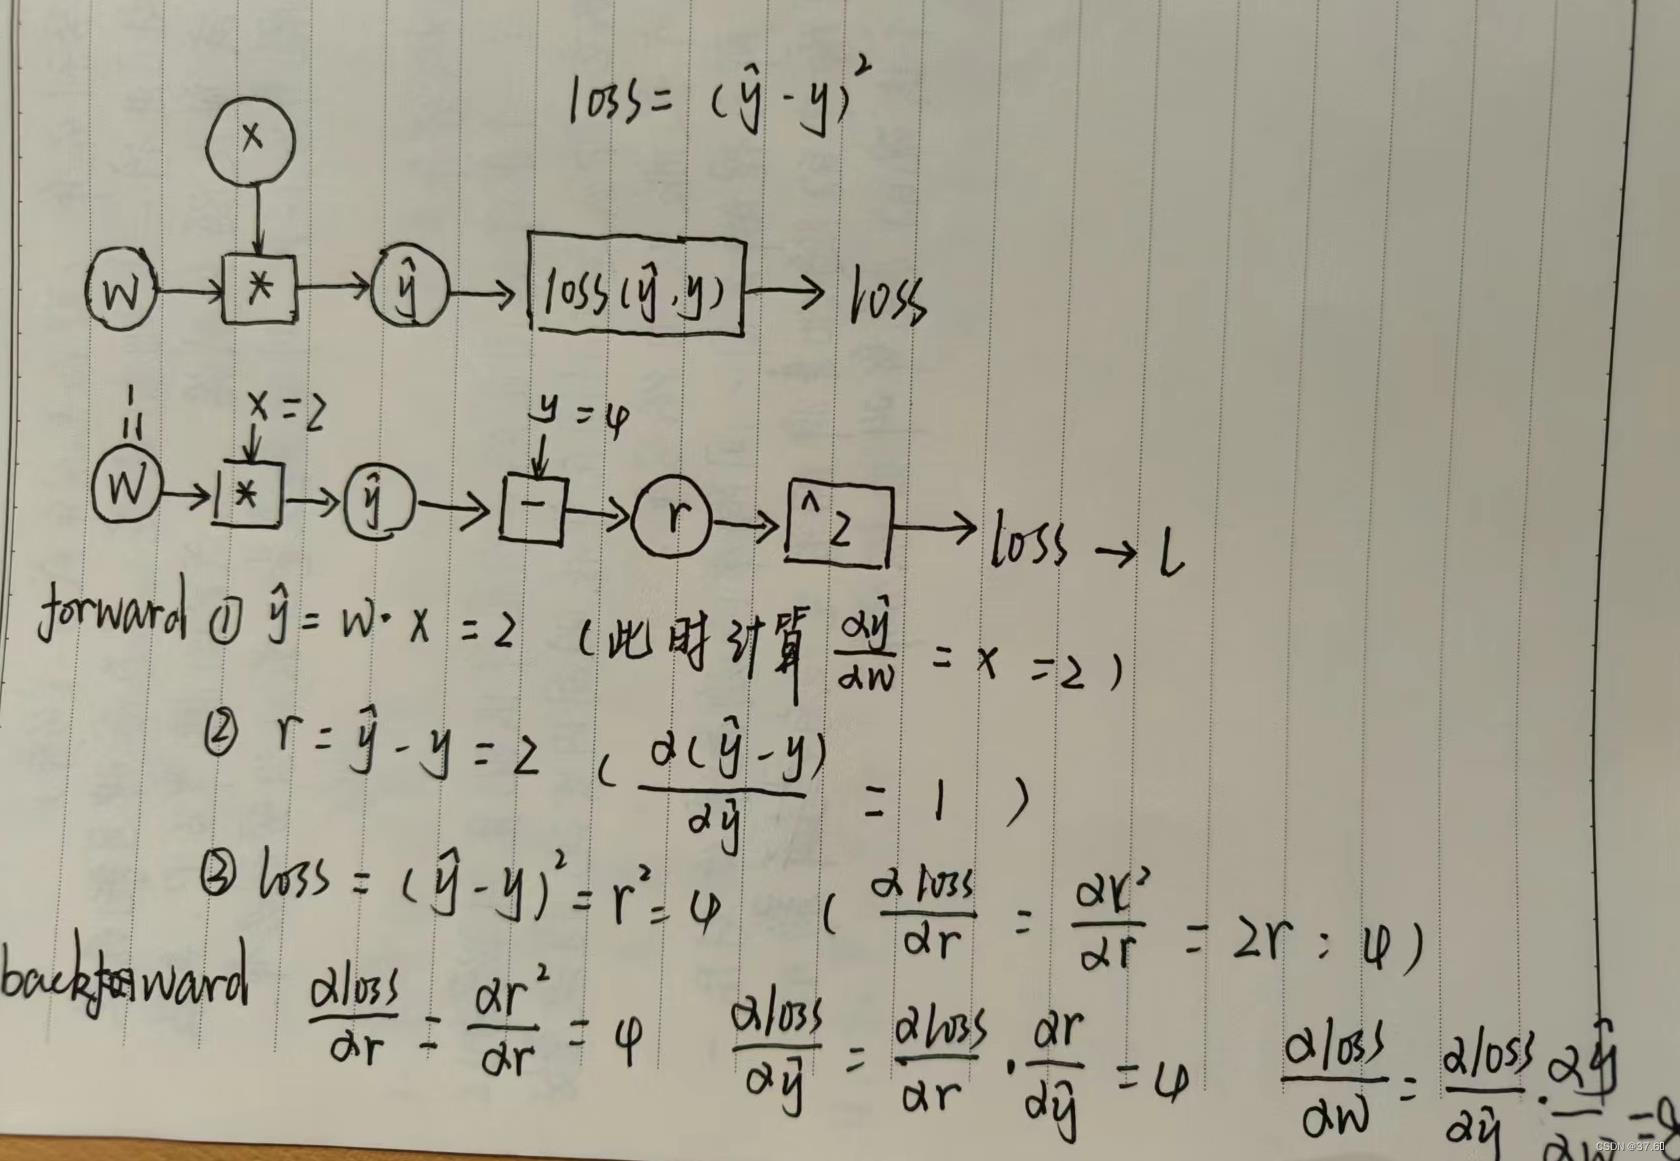 loss = (ŷ - y)²
x
w * ŷ loss(ŷ,y) → loss
1
=
x = 2 y = 4
w → * → ŷ → - → r → ^2 → loss → L
forward ① ŷ = w · x = 2 (此时计算 ∂ŷ/∂w = x = 2)
② r = ŷ - y = 2 (∂(ŷ - y)/∂ŷ = 1)
③ loss = (ŷ - y)² = r² = 4 (∂loss/∂r = ∂r²/∂r = 2r = 4)
backforward ∂loss/∂r = ∂r²/∂r = 4 ∂loss/∂ŷ = ∂loss/∂r · ∂r/∂ŷ = 4 ∂loss/∂w = ∂loss/∂ŷ · ∂ŷ/∂w = 8